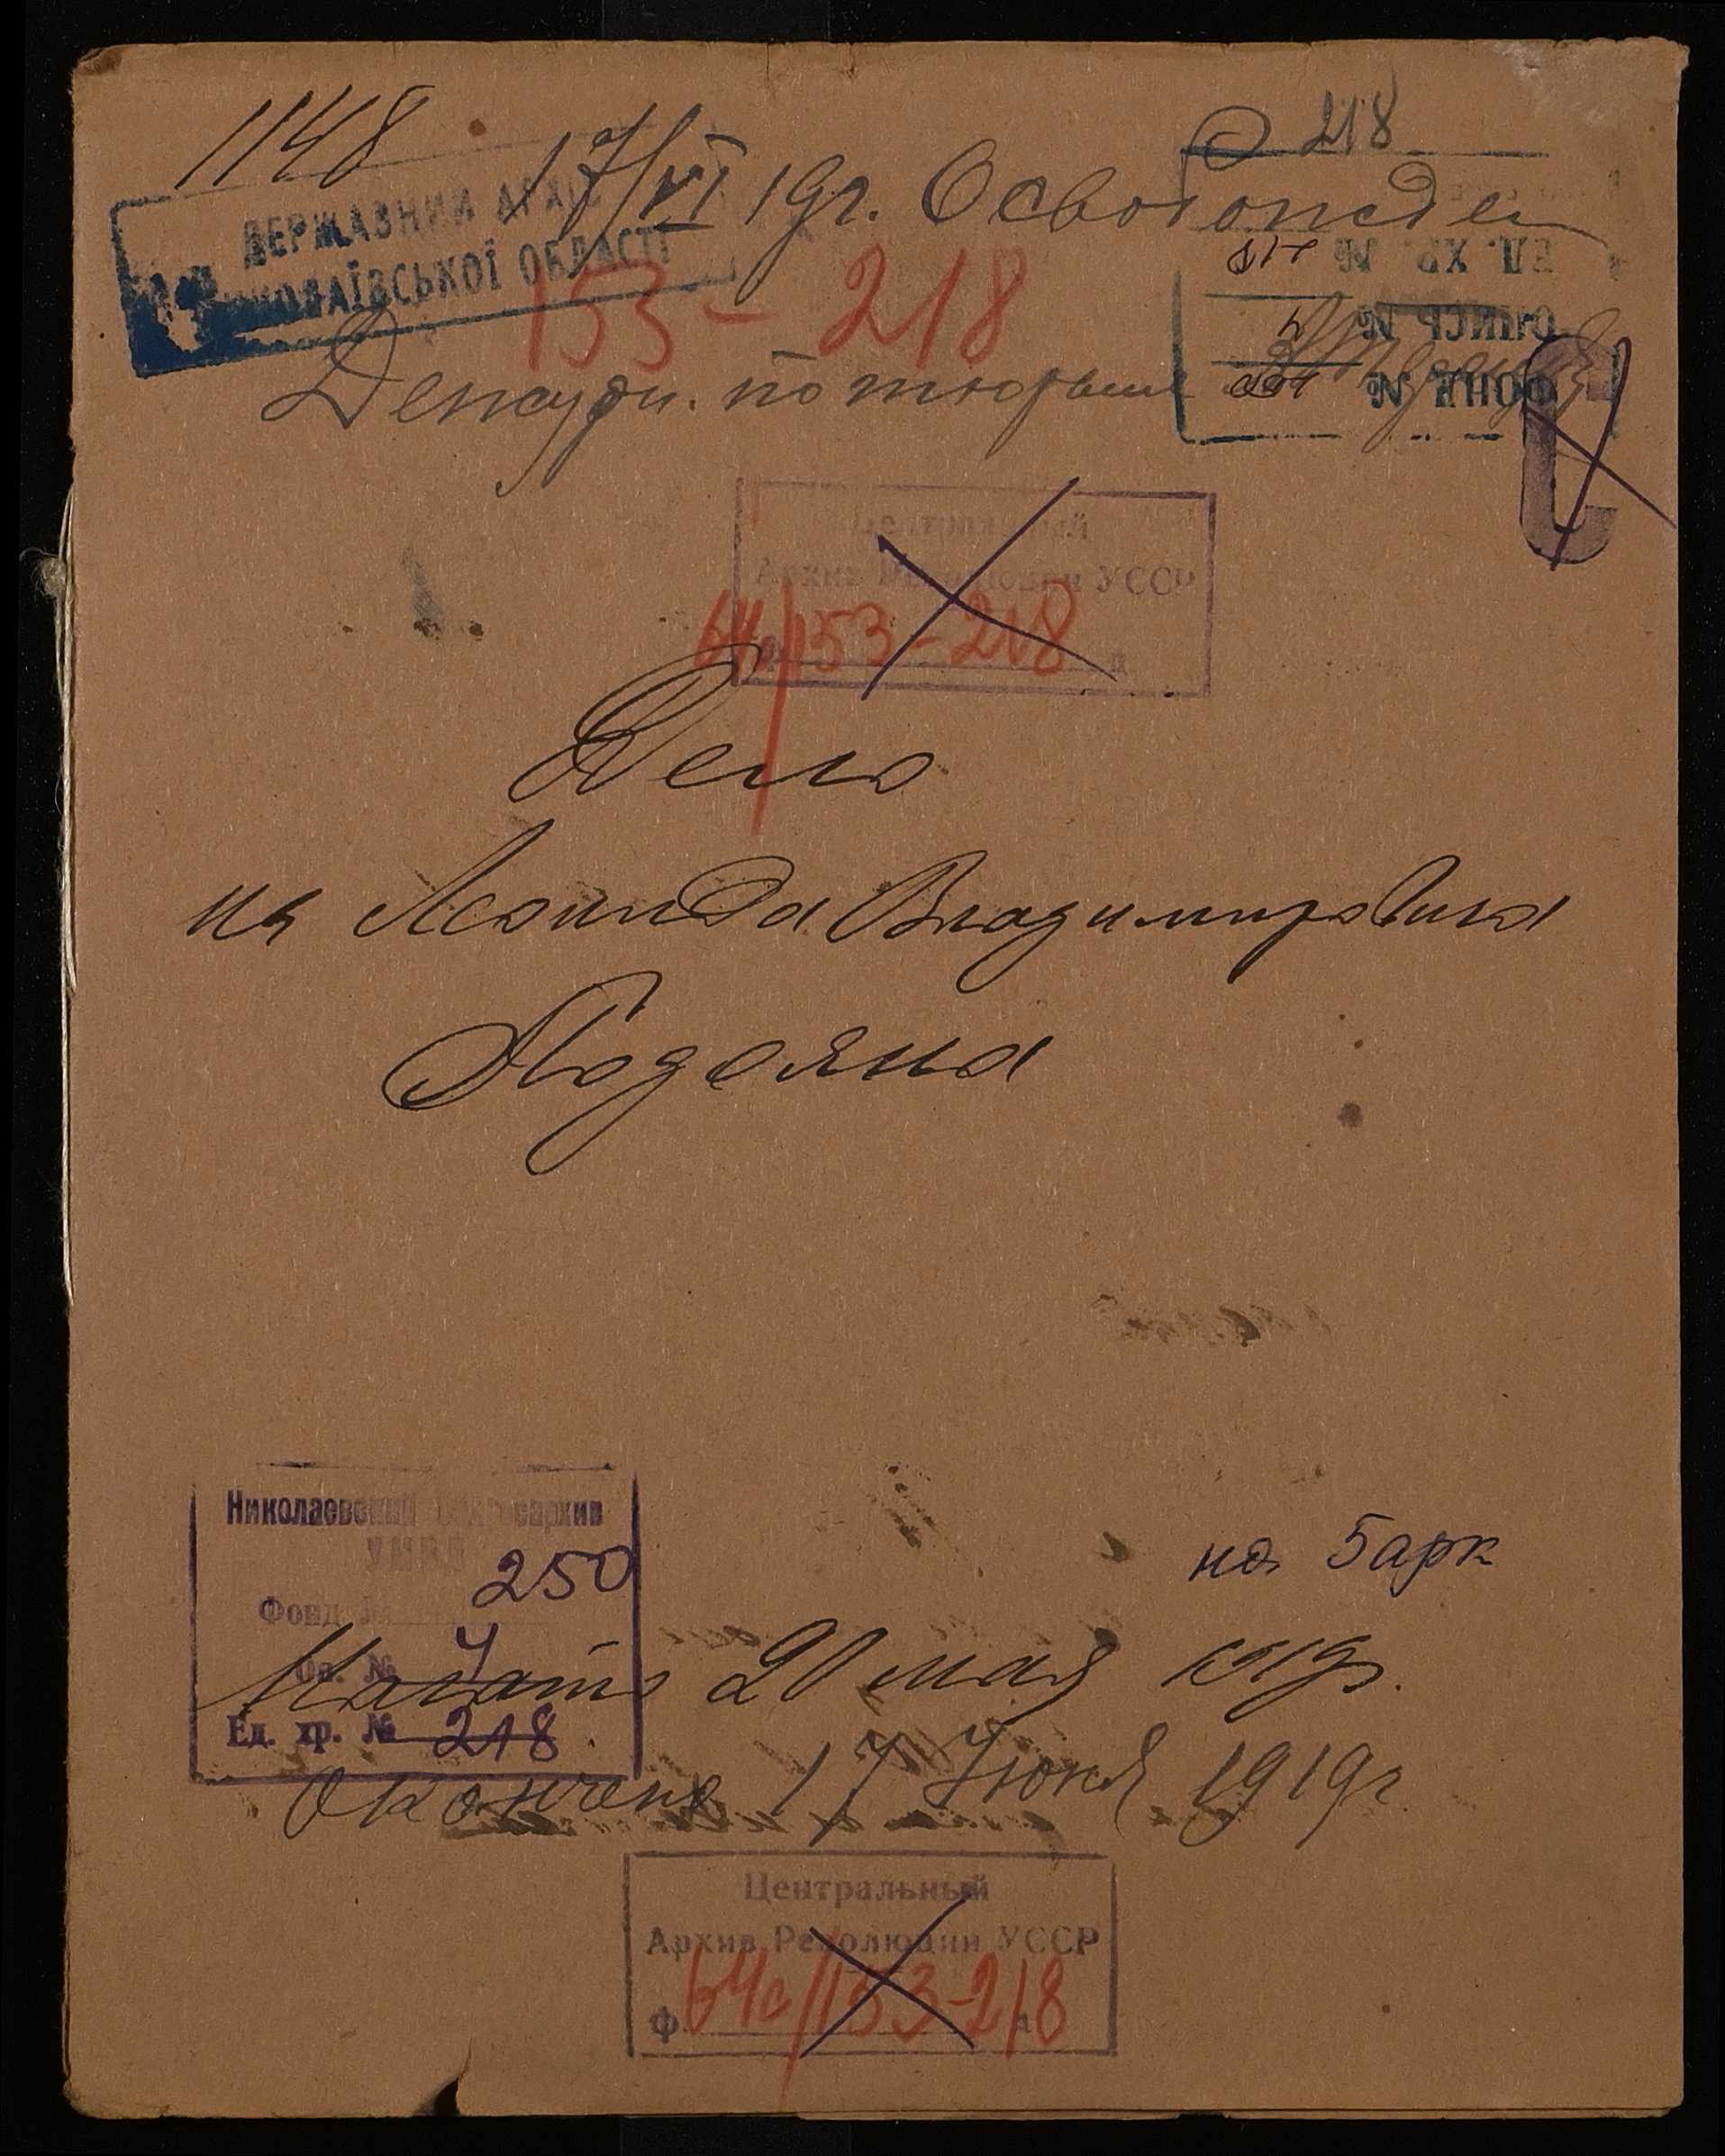 1148
218
17/VI 19г. Освобожден
ДЕРЖАВНИЙ АРХІВ
МИКОЛАЇВСЬКОЇ ОБЛАСТІ
153-218
ЕД. ХР. № 218
ОПИСЬ № 4
ФОНД №
Дежурн. по тюрьме
Центральный
Архив Революции УССР
64с/153-218
Дело
на Леонида Владимировича
Подояна
Николаевский архив
Фонд № 250
Оп. № 4
Ед. хр. № 218
на 5 арк
Начато 20 мая 1919г.
Окончено 17 Июня 1919г
Центральный
Архив Революции УССР
ф. 64с/153-218